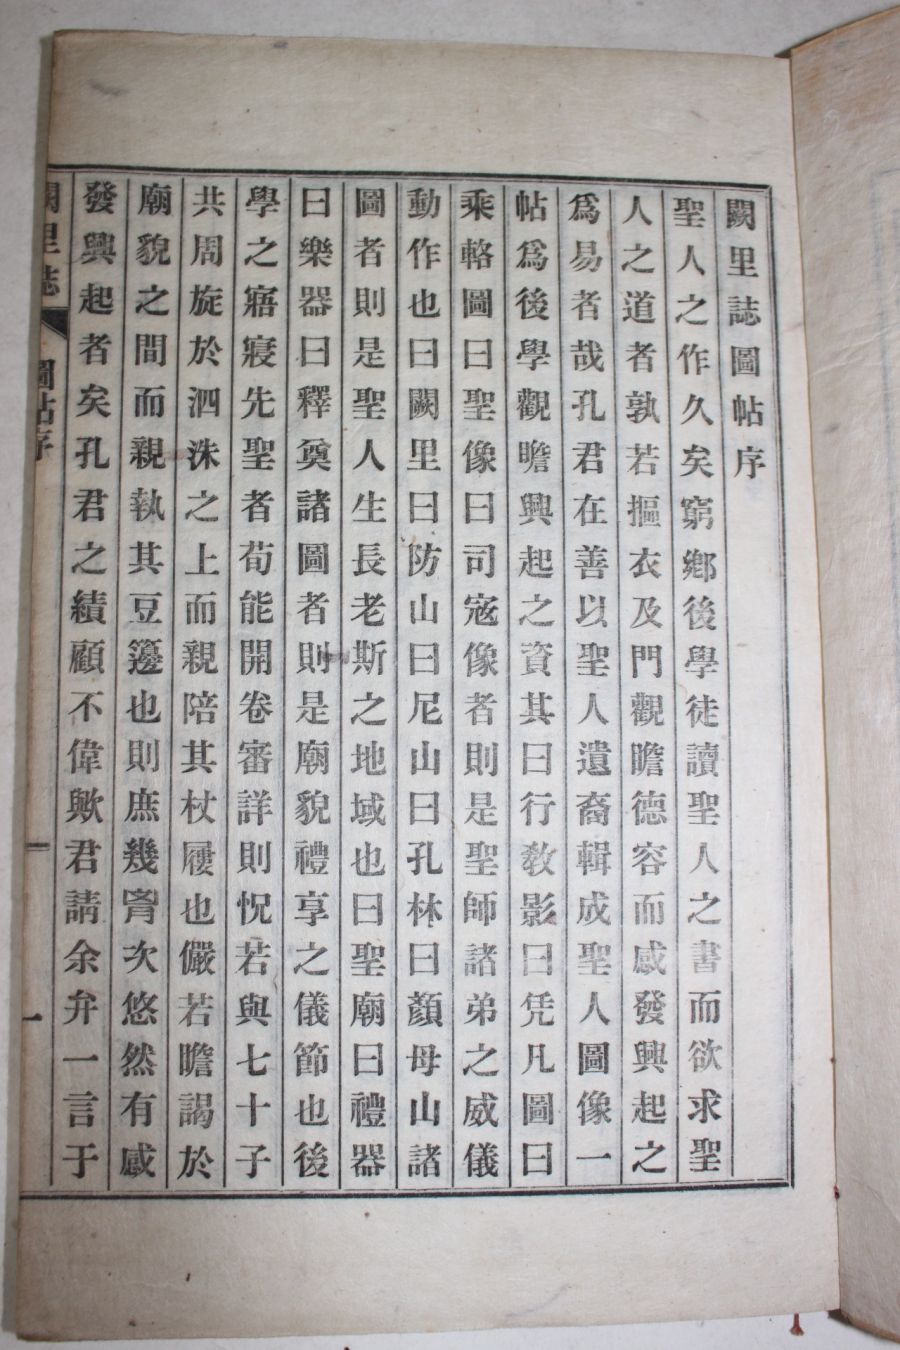 闕里誌圖帖序
聖人之作久矣窮鄕後學徒讀聖人之書而欲求聖
人之道者孰若摳衣及門觀瞻德容而感發興起之
爲易者哉孔君在善以聖人遺裔輯成聖人圖像一
帖爲後學觀瞻興起之資其曰行敎影曰凭几圖曰
乘輅圖曰聖像曰司寇像者則是聖師諸弟之威儀
動作也曰闕里曰防山曰尼山曰孔林曰顏母山諸
圖者則是聖人生長老斯之地域也曰聖廟曰禮器
曰樂器曰釋奠諸圖者則是廟貌禮享之儀節也後
學之寤寢先聖者荀能開卷審詳則怳若與七十子
共周旋於泗洙之上而親陪其杖屨也儼若瞻謁於
廟貌之間而親執其豆籩也則庶幾胷次悠然有感
發興起者矣孔君之績顧不偉歟君請余弁一言于
闕里誌 圖帖序 一